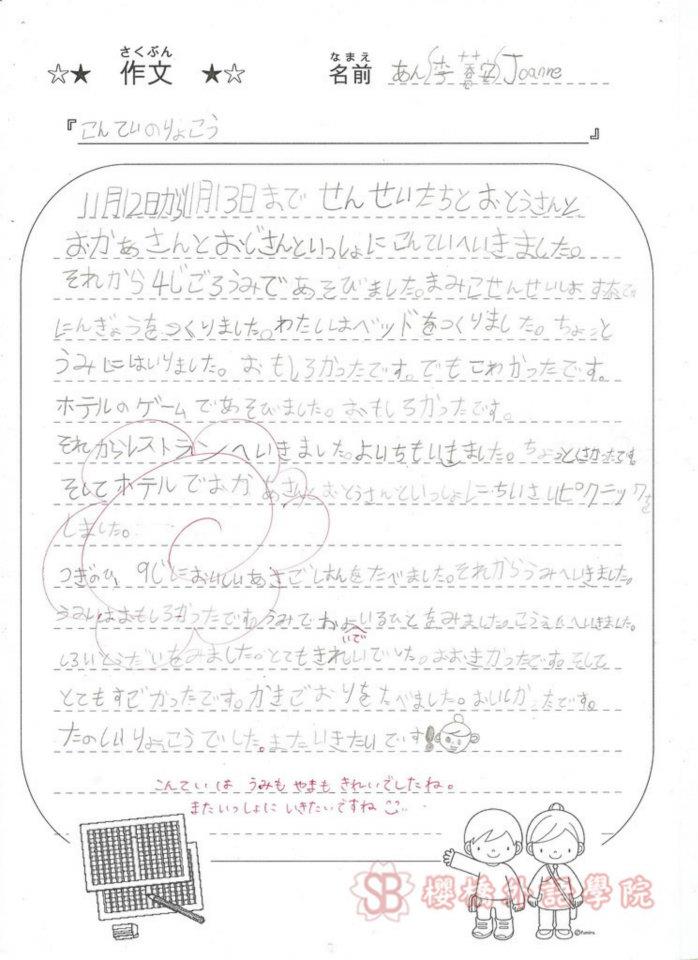 さくぶん なまえ
☆★ 作文 ★☆ 名前 あん(李 安)Joanne
『こんていのりょこう』
11月12日から11月13日まで せんせいたちと おとうさんと
おかあさんとおじさんといっしょに こんていへいきました。
それから4じごろうみであそびました。まみこせんせいは すなで
にんぎょうをつくりました。わたしはベッドをつくりました。ちょっと
うみにはいりました。おもしろかったです。でもこわかったです。
ホテルのゲームであそびました。おもしろかったです。
それからレストランへいきました。よいちもいきました。ちょっと
そしてホテルでおかあさんとおとうさんといっしょにちいさいピクニックを
しました。
つぎのひ、9じにおいしいあさごはんをたべました。それからうみへいきました。
うみはおもしろかったです。うみでおよいでいるひとをみました。こうえんへいきました。
しろいとうだいをみました。とてもきれいでした。おおきかったです。そして
とてもすごかったです。かきごおりをたべました。おいしかったです。
たのしいりょこうでした。またいきたいです!
こんていは うみも やまも きれいでしたね。
またいっしょに いきたいですね
SB 櫻橋外語學院
©fumira